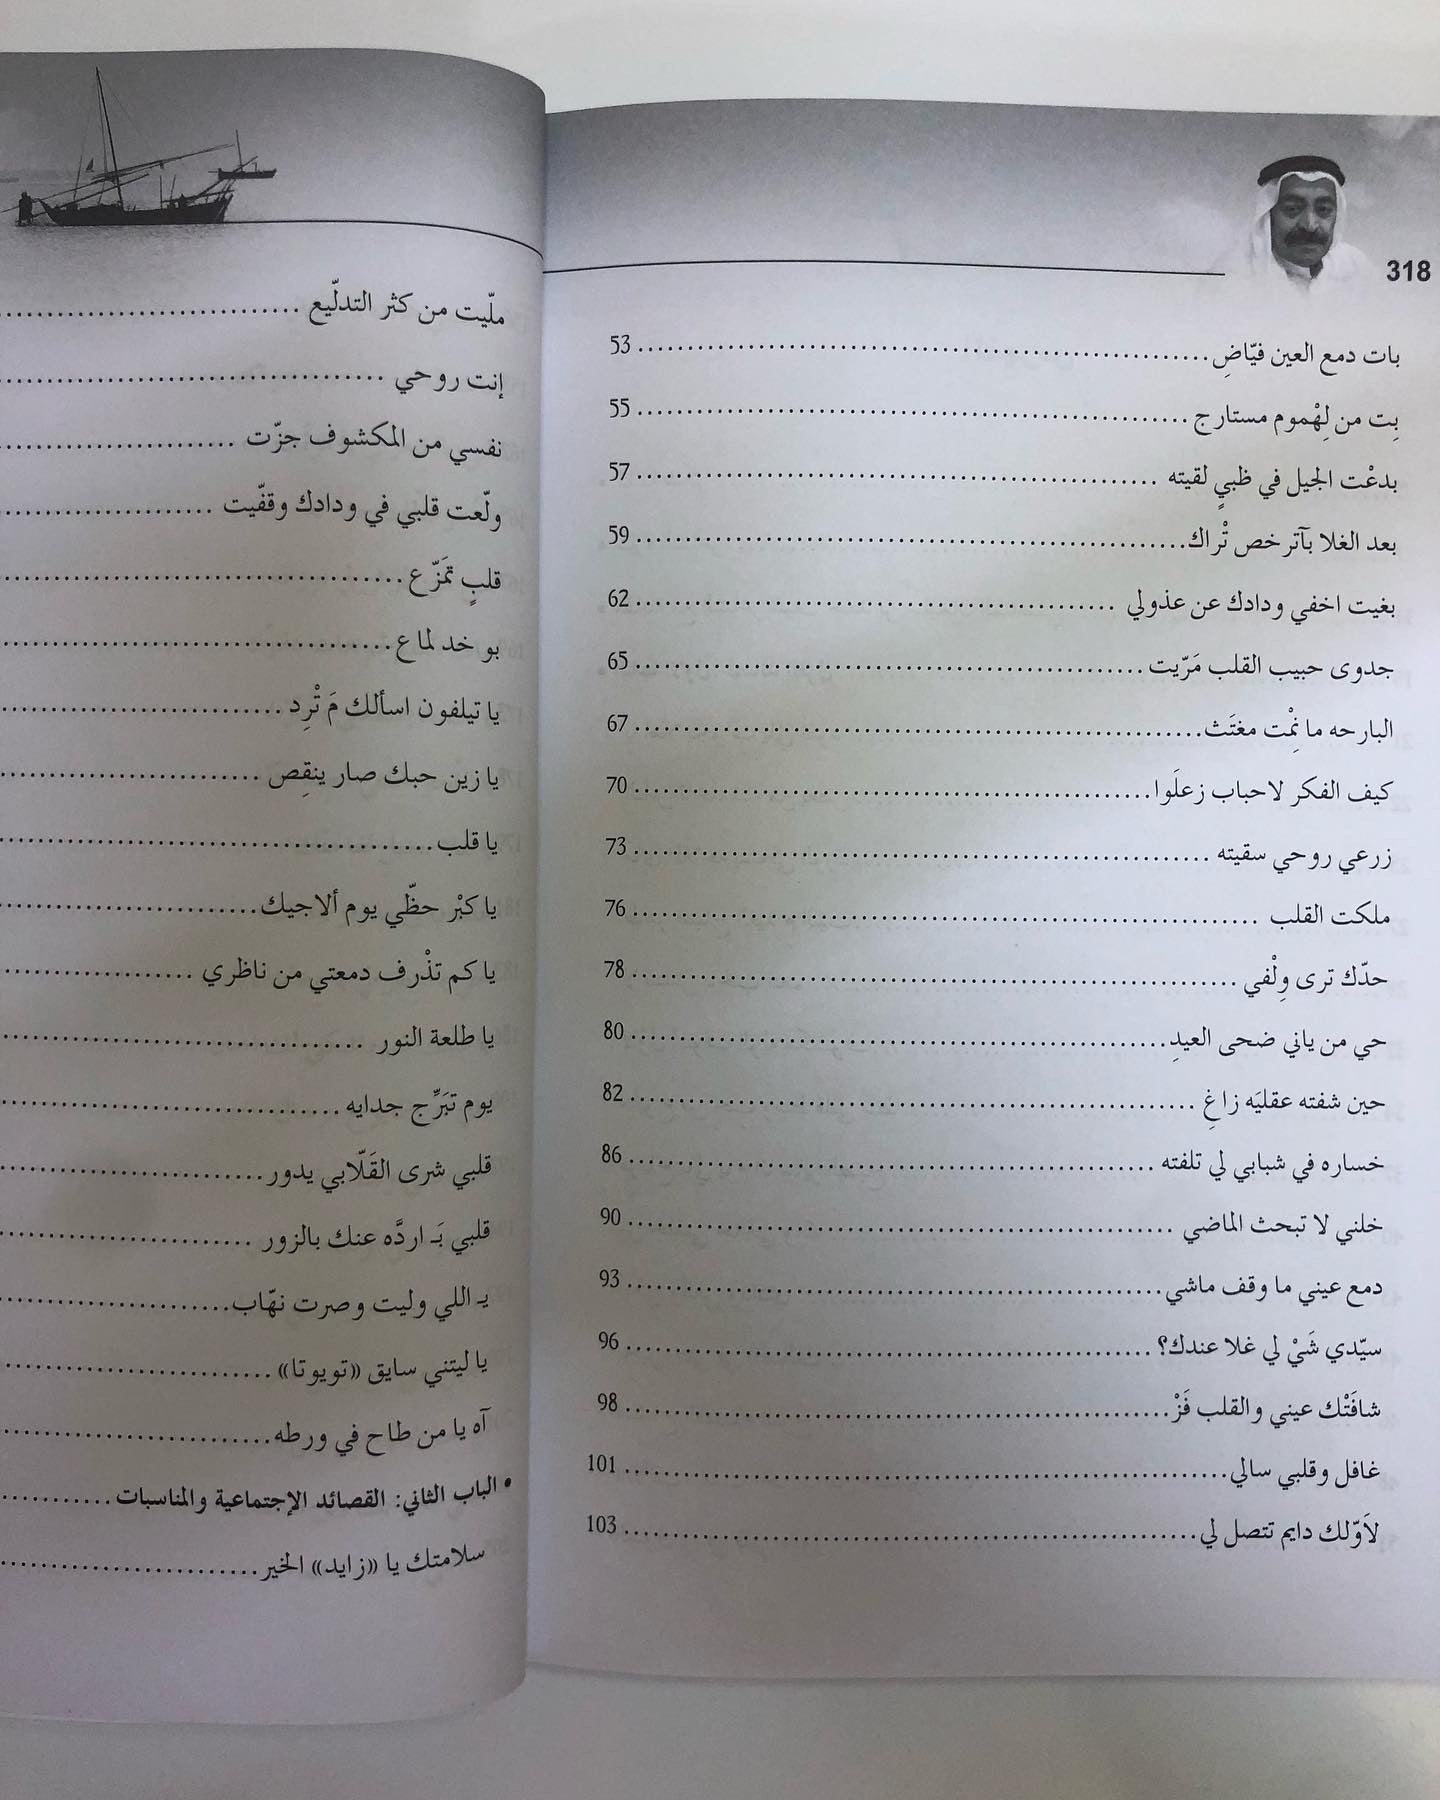 318
بات دمع العين فيّاضِ ........ 53
بِت من لِهْموم مستارج ........ 55
بدعْت الجيل في ظبيٍ لقيته ........ 57
بعد الغلا بآترخص تْراك ........ 59
بغيت اخفي ودادك عن عذولي ........ 62
جدوى حبيب القلب مَرّيت ........ 65
البارحه ما نِمْت مغتَث ........ 67
كيف الفكر لاحباب زعلَوا ........ 70
زرعي روحي سقيته ........ 73
ملكت القلب ........ 76
حدّك ترى وِلْفي ........ 78
حي من ياني ضحى العيدِ ........ 80
حين شفته عقليَه زاغِ ........ 82
خساره في شبابي لي تلفته ........ 86
خلني لا تبحث الماضي ........ 90
دمع عيني ما وقف ماشي ........ 93
سيّدي شَيْ لي غلا عندك؟ ........ 96
شافَتْك عيني والقلب فَزْ ........ 98
غافل وقلبي سالي ........ 101
لاَوّلك دايم تتصل لي ........ 103
ملّيت من كثر التدلّيع ........
إنت روحي ........
نفسي من المكشوف جزّت ........
ولّعت قلبي في ودادك وقفّيت ........
قلبٍ تمَزّع ........
بو خد لماع ........
يا تيلفون اسألك مَ تْرِد ........
يا زين حبك صار ينقِص ........
يا قلب ........
يا كبْر حظّي يوم ألاجيك ........
يا كم تذْرف دمعتي من ناظري ........
يا طلعة النور ........
يوم تبَرِّج جدايه ........
قلبي شرى القَلّابي يدور ........
قلبي بَـ اردَّه عنك بالزور ........
يـ اللي وليت وصرت نهّاب ........
يا ليتني سايق «تويوتا» ........
آه يا من طاح في ورطه ........
• الباب الثاني: القصائد الإجتماعية والمناسبات ........
سلامتك يا «زايد» الخير ........